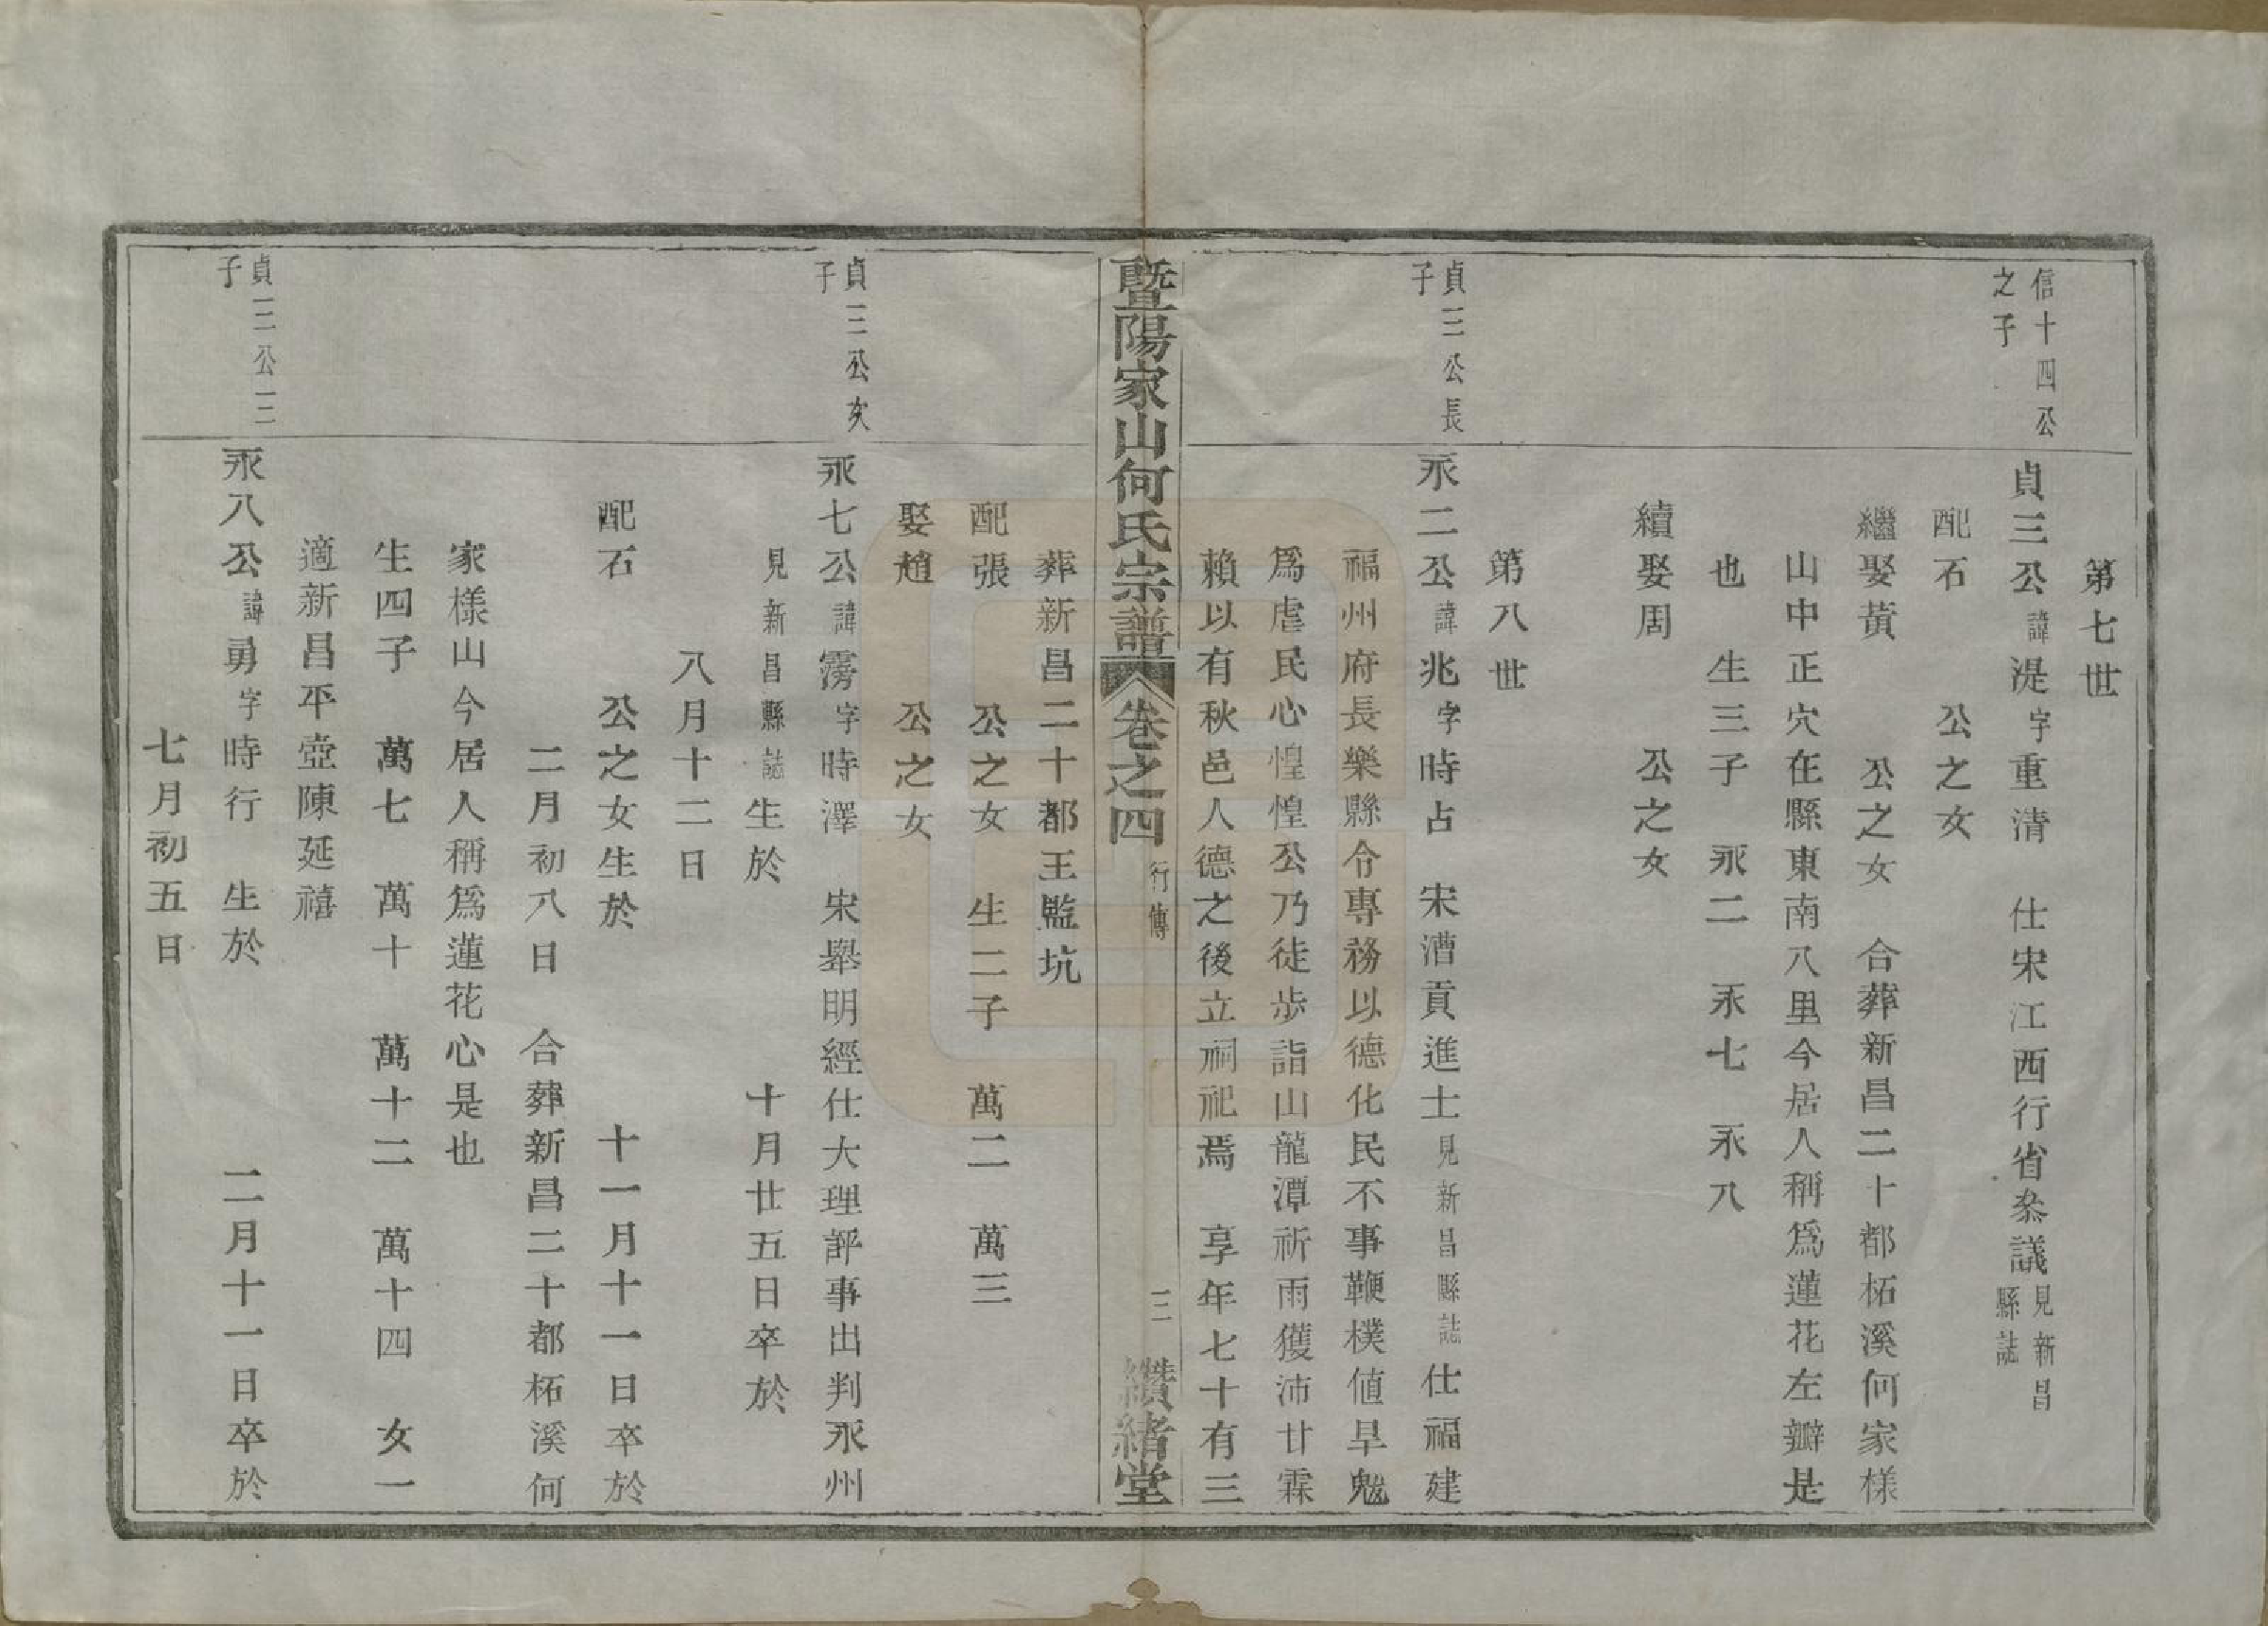 第七世
信十四公
之子
貞三公諱湜字重清　仕宋江西行省叅議見新昌
縣誌
配石　　公之女
繼娶黃　　公之女　合葬新昌二十都柘溪何家樣
山中正穴在縣東南八里今居人稱爲蓮花左瓣是
也　生三子　永二　永七　永八
續娶周　　公之女
第八世
貞三公長
子
永二公諱兆字時占　宋漕貢進士見新昌縣誌仕福建
福州府長樂縣令專務以德化民不事鞭樸值旱魃
爲虐民心惶惶公乃徒步詣山龍潭祈雨獲沛甘霖
賴以有秋邑人德之後立祠祀焉　享年七十有三
暨陽家山何氏宗譜　卷之四　行傳　三　纘緒堂
葬新昌二十都王監坑
配張　　公之女　生二子　萬二　萬三
娶趙　　公之女
貞三公次
子
永七公諱霶字時澤　宋舉明經仕大理評事出判永州
見新昌縣誌生於　　　　十月廿五日卒於
八月十二日
配石　　公之女生於　　　　十一月十一日卒於
二月初八日　合葬新昌二十都柘溪何
家樣山今居人稱爲蓮花心是也
生四子　萬七　萬十　萬十二　萬十四　女一
適新昌平壺陳延禧
貞三公三
子
永八公諱勇字時行　生於　　　　二月十一日卒於
七月初五日